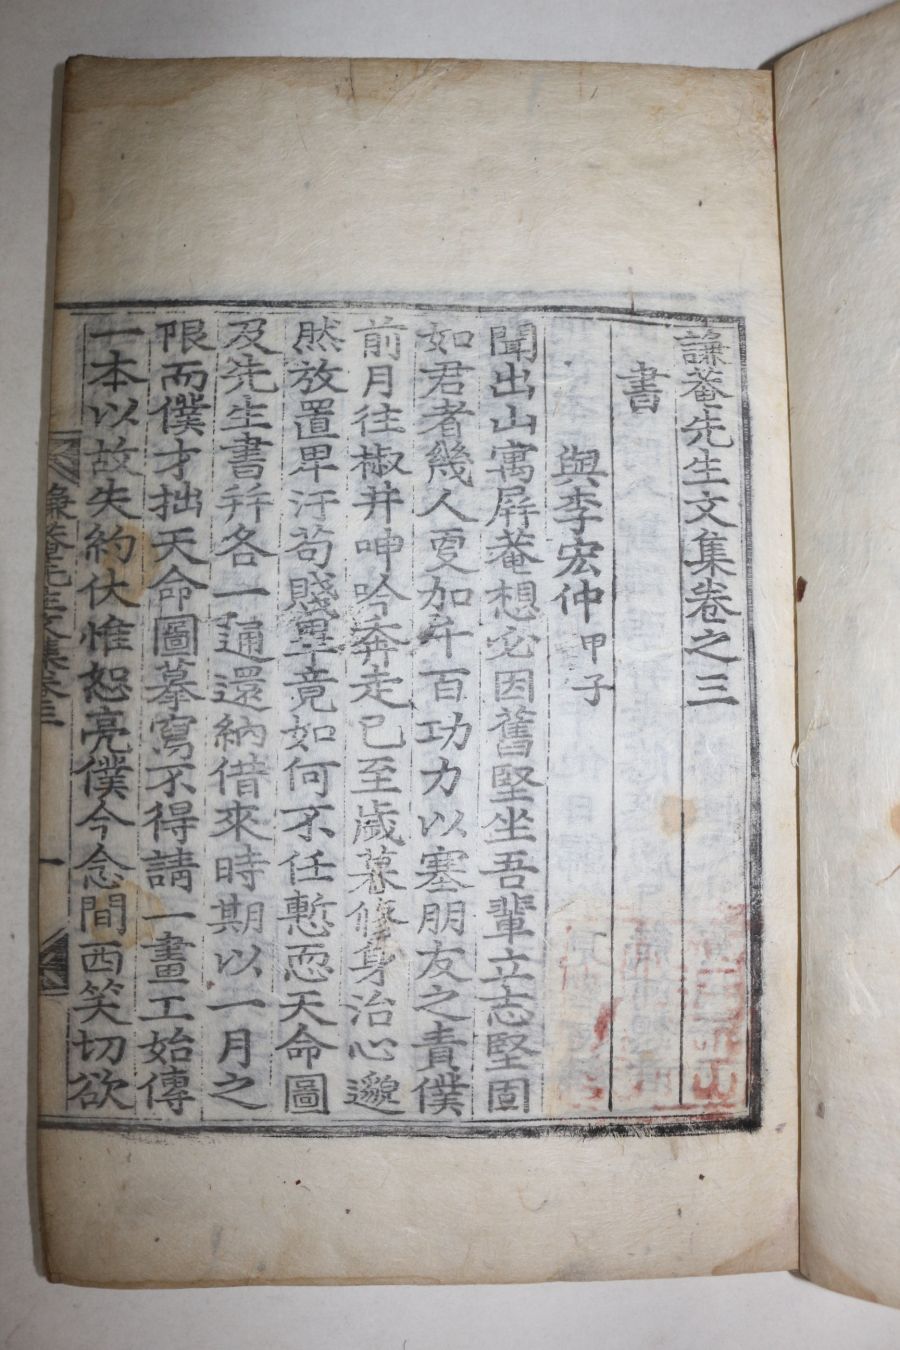 謙菴先生文集卷之三
書
與李宏仲 甲子
聞出山寓屛菴想必因舊堅坐吾輩立志堅固
如君者幾人更加年百功力以塞朋友之責僕
前月往椒井呻吟奔走已至歲暮修身治心邈
然放置卑汗苟賤畢竟如何不任慙恧天命圖
及先生書幷各一通還納借來時期以一月之
限而僕才拙天命圖摹寫不得請一畫工始傳
一本以故失約伏惟恕亮僕今念間西笑切欲
謙菴先生文集卷三 一